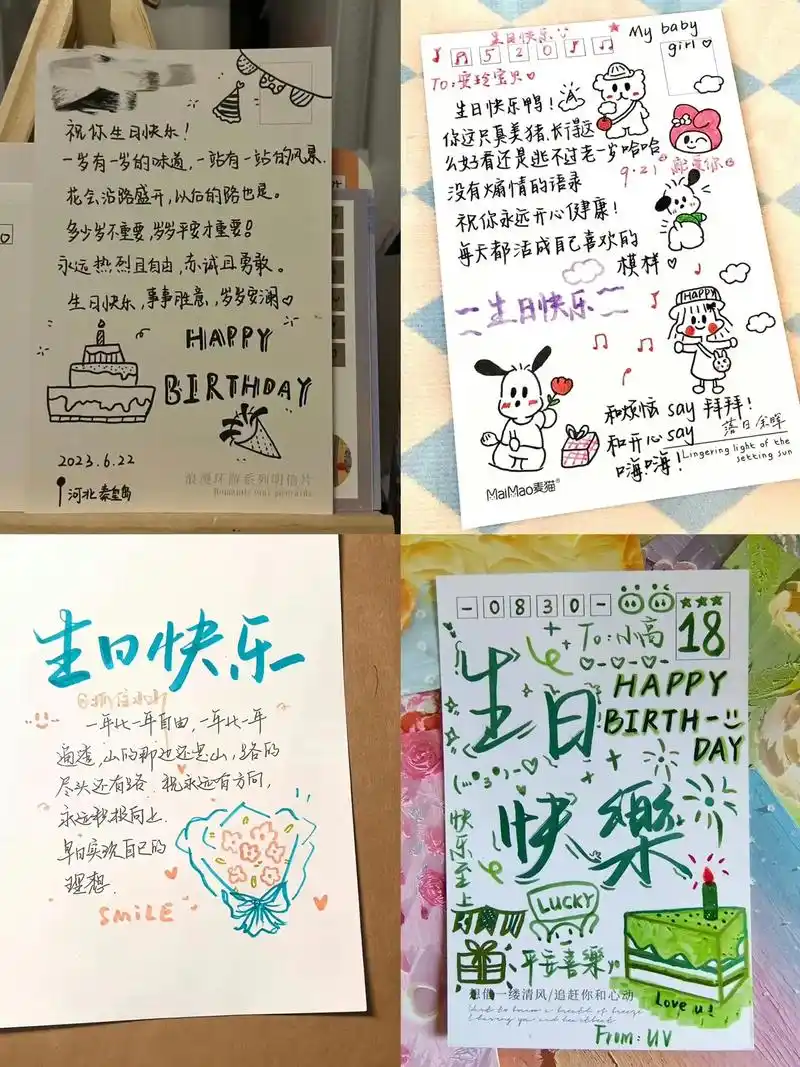 祝你生日快乐!
一岁有一岁的味道,一站有一站的风景.
花会沿路盛开,以后的路也是。
多少岁不重要,岁岁平安才重要!
永远热烈且自由,赤诚且勇敢。
生日快乐,事事胜意,岁岁安澜♡
HAPPY
BIRTHDAY
2023.6.22
河北秦皇岛
浪漫环游系列明信片
Romantic tour postcards
生日快乐
My baby
girl ♡
520
TO:宝贝♡
生日快乐鸭!
你这只真美猪,长得这
么好看还是逃不过老一岁哈哈
9.21
没有煽情的语录
祝你永远开心健康!
每天都活成自己喜欢的
模样♡
生日快乐
HAPPY
和烦恼 say 拜拜!
和开心 say
嗨嗨!
落日余晖
Lingering light of the
setting sun
MaiMao麦猫®
生日快乐
一年比一年自由,一年比一年
通透,山的那边还是山,路的
尽头还有路.祝永远有方向,
永远积极向上.
早日实现自己的
理想.
SMILE
-0830-
To:小高
18
生日
HAPPY
BIRTH-
DAY
快樂
快乐至上
LUCKY
平安喜樂
想借一缕清风/追赶你和心动
Love u!
From:UV